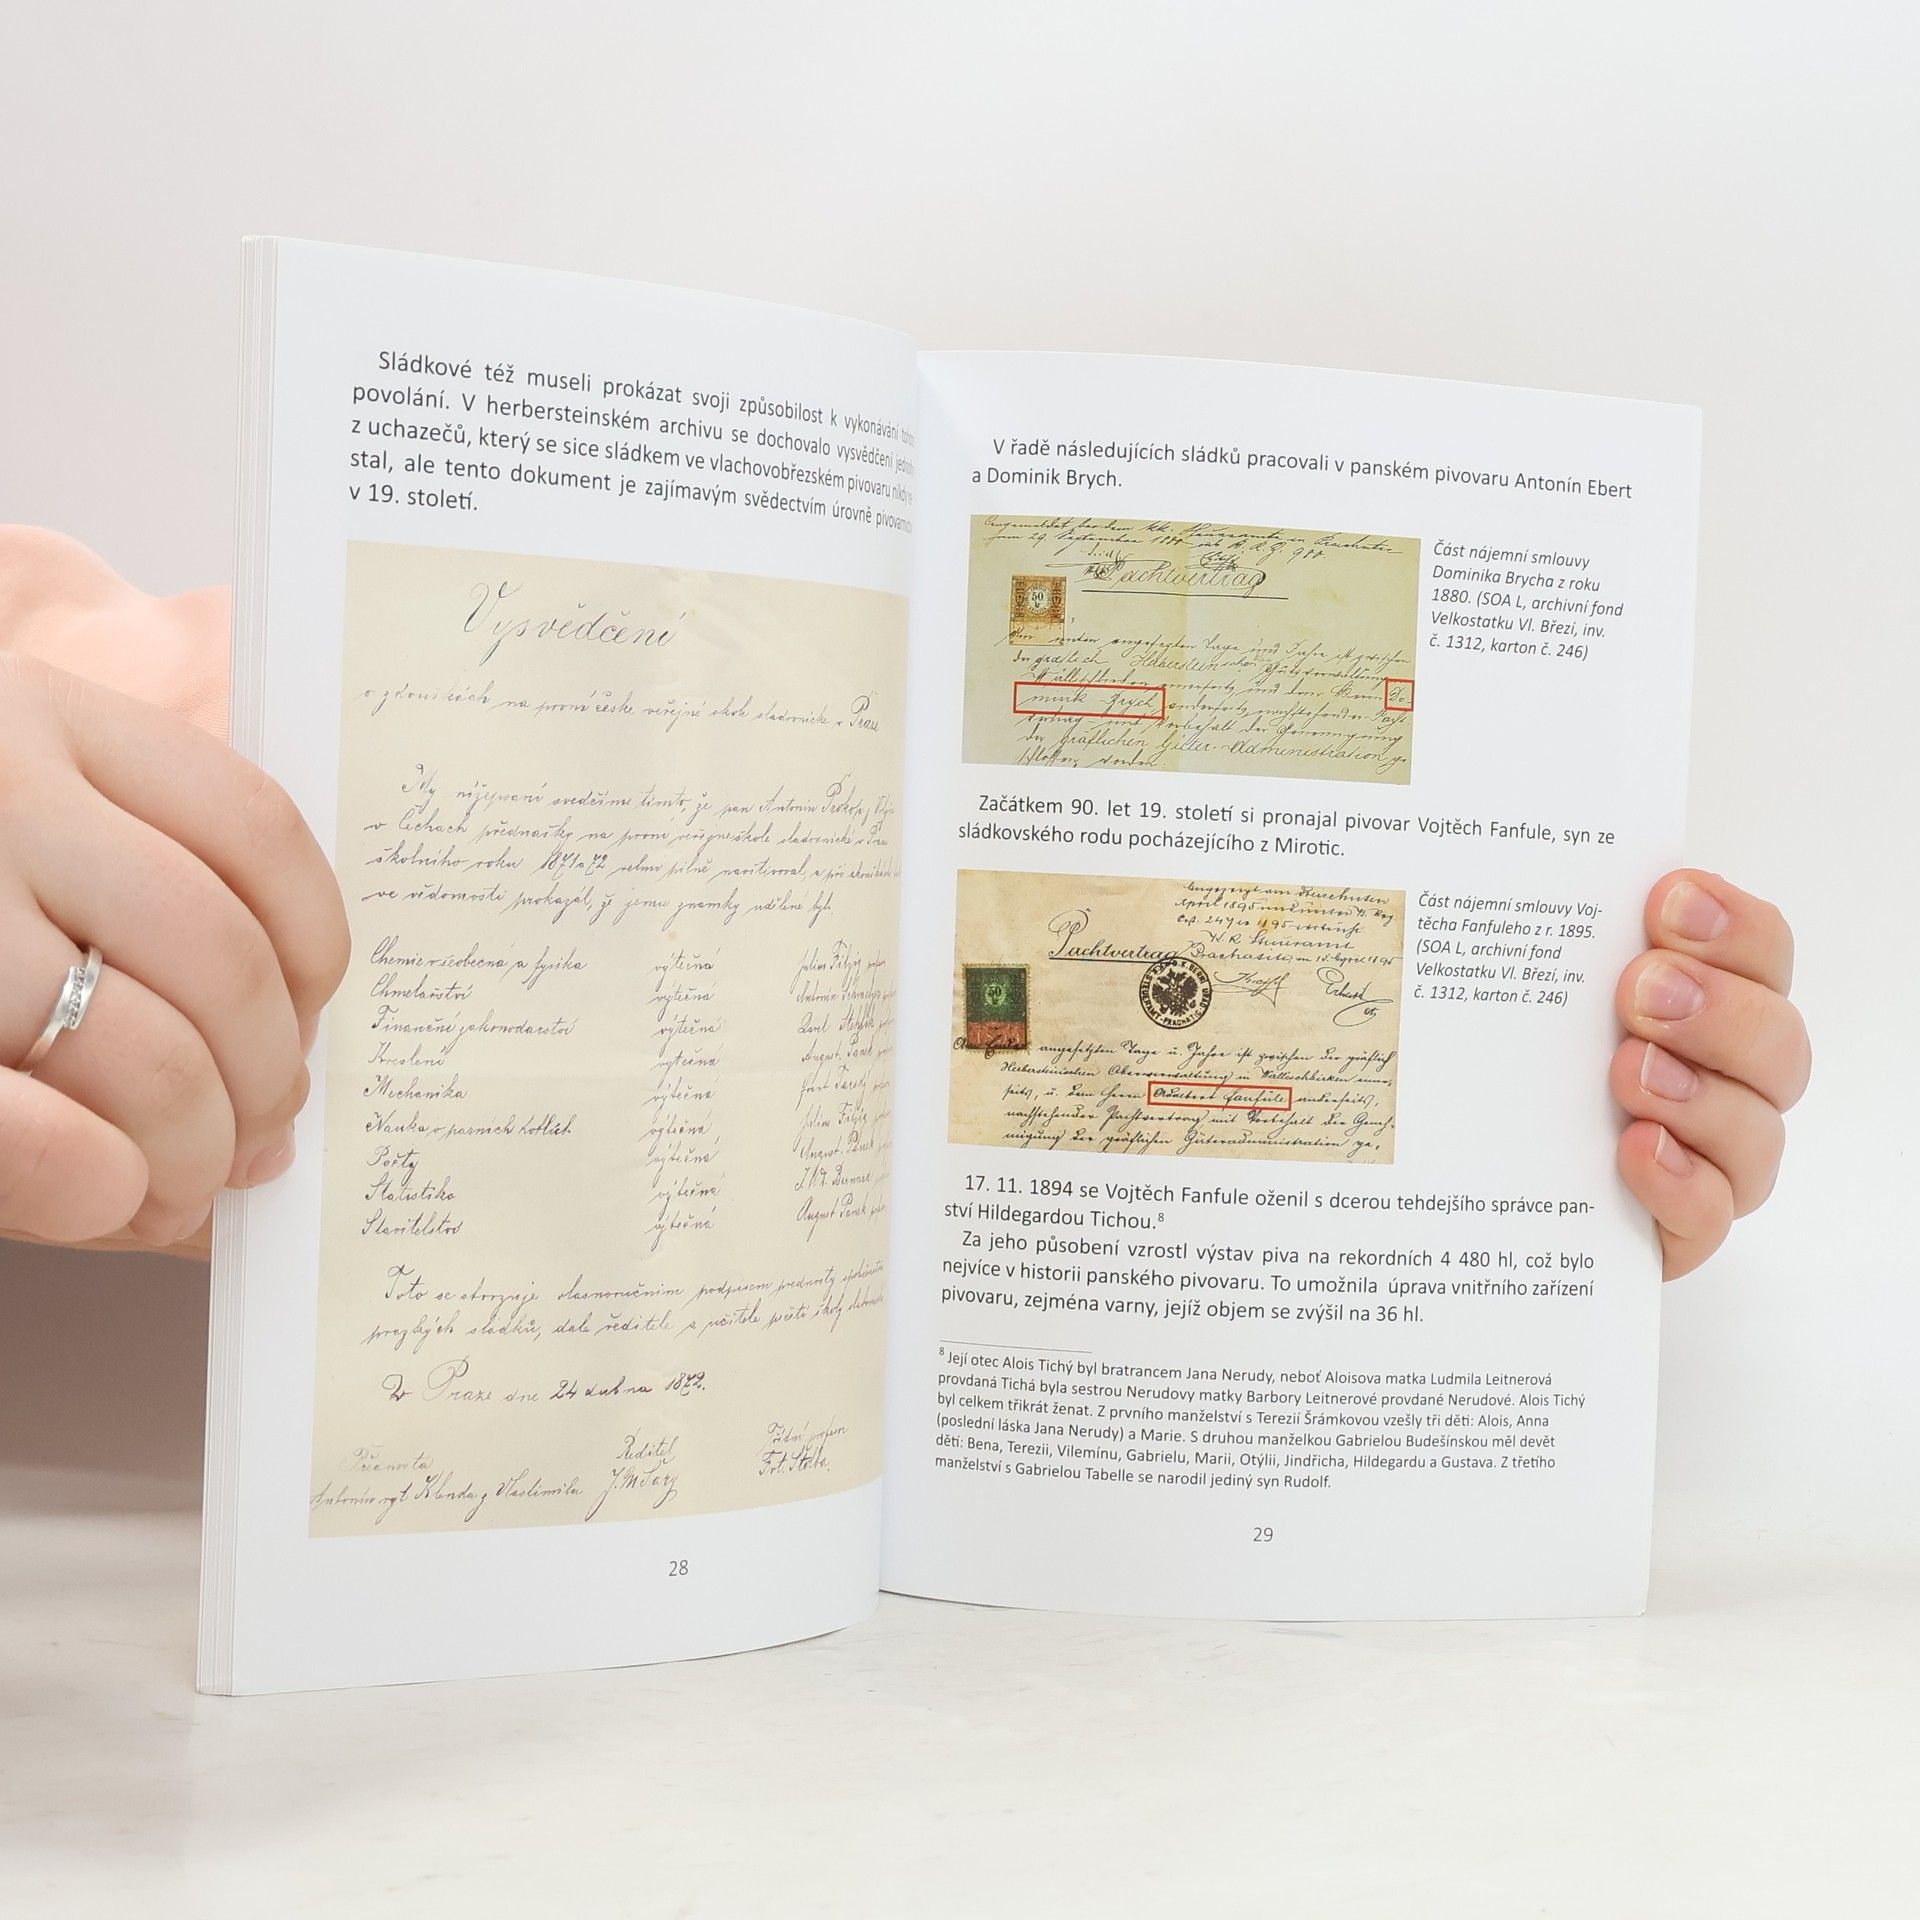 Sládkové též museli prokázat svoji způsobilost k vykonávání
povolání. V herbersteinském archivu se dochovalo vysvědčení
z uchazečů, který se sice sládkem ve vlachovobřezském pivovaru
stal, ale tento dokument je zajímavým svědectvím úrovně
v 19. století.
Vysvědčení
o zkouškách na první české veřejné škole sladovnické v Praze
My nížepsaní svedčíme tímto, že pan Antonín Prokop
v Čechách přednášky na první veřejné škole sladovnické v
školního roku 1871a72 velmi pilně navštívoval, a při
ve vědomosti prokázal, že jemu známky udělené byly
Chemie všeobecná a fysika výtečná
Chmelařství výtečná
Finanční zákonodarství výtečná
Kreslení výtečná
Mechanika výtečná
Nauka o parních kotlích výtečná
Počty výtečná
Statistika výtečná
Stavitelství výtečná
Toto se stvrzuje vlasnoručním podpisem
pražských sládků, dále ředitele a učitele
V Praze dne 24 dubna 1872.
Ředitel
28
V řadě následujících sládků pracovali v panském pivovaru Antonín Ebert
a Dominik Brych.
29. September 1880
Pachtvertrag
50
minik Brych
der gräflichen Güter-Administration ge
schlossen worden.
Část nájemní smlouvy
Dominika Brycha z roku
1880. (SOA L, archivní fond
Velkostatku Vl. Březí, inv.
č. 1312, karton č. 246)
Začátkem 90. let 19. století si pronajal pivovar Vojtěch Fanfule, syn ze
sládkovského rodu pocházejícího z Mirotic.
April 1895
Pachtvertrag
50
angesetzten Tage u. Jahre ist zwischen der gräflich
Herbersteinischen Oberverwaltung in Wällischbirken einer-
seits, u. dem Herrn Adalbert Fanfule anderseits,
nachstehender Pachtvertrag mit Vorbehalt der Geneh-
migung der gräflichen Güteradministration ge-
Část nájemní smlouvy Voj-
těcha Fanfuleho z r. 1895.
(SOA L, archivní fond
Velkostatku Vl. Březí, inv.
č. 1312, karton č. 246)
17. 11. 1894 se Vojtěch Fanfule oženil s dcerou tehdejšího správce pan-
ství Hildegardou Tichou.⁸
Za jeho působení vzrostl výstav piva na rekordních 4 480 hl, což bylo
nejvíce v historii panského pivovaru. To umožnila úprava vnitřního zařízení
pivovaru, zejména varny, jejíž objem se zvýšil na 36 hl.
⁸ Její otec Alois Tichý byl bratrancem Jana Nerudy, neboť Aloisova matka Ludmila Leitnerová
provdaná Tichá byla sestrou Nerudovy matky Barbory Leitnerové provdané Nerudové. Alois Tichý
byl celkem třikrát ženat. Z prvního manželství s Terezií Šrámkovou vzešly tři děti: Alois, Anna
(poslední láska Jana Nerudy) a Marie. S druhou manželkou Gabrielou Budešínskou měl devět
dětí: Bena, Terezii, Vilemínu, Gabrielu, Marii, Otýlii, Jindřicha, Hildegardu a Gustava. Z třetího
manželství s Gabrielou Tabelle se narodil jediný syn Rudolf.
29